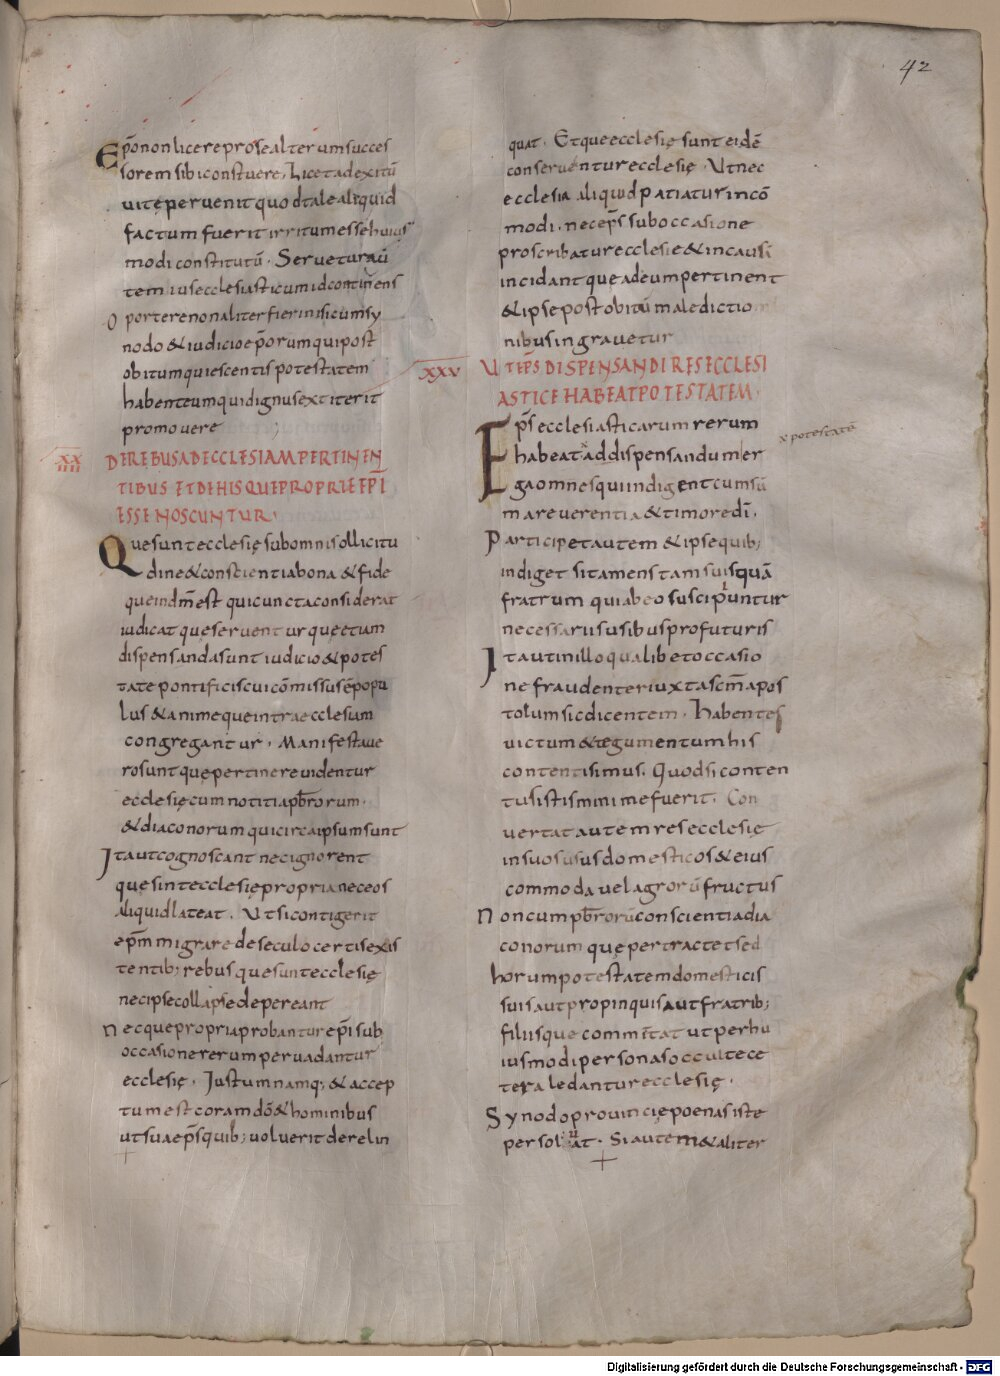 42
Ep̄o non licere pro se alterum succes
sorem sibi constuere, Licet ad exitū
uitę peruenit quod tale aliquid
factum fuerit irritum esse huius
modi constitutū. Seruetur aū
tem ius ecclesiasticum id continens
Oportere non aliter fieri nisi cum sy
nodo & iudicio ep̄orum qui post
obitum quiescentis potestatem
habent eum qui dignus extiterit
promouere
XXIIII DE REBUS AD ECCLESIAM PERTINEN
TIBUS ET DE HIS QUE PROPRIE EPI
ESSE NOSCUNTUR.
Que sunt ecclesię sub omni sollicitu
dine & conscientia bona & fide
que in dm̄ est qui cuncta considerat
iudicat que seruentur que etiam
dispensanda sunt iudicio & potes
tate pontificis cui cōmissus ē popu
lus & anime que intra ecclesiam
congregantur. Manifesta ue
ro sunt que pertinere uidentur
ecclesię cum notitia pb̄rorum.
& diaconorum qui circa ipsum sunt
Ita ut cognoscant nec ignorent
que sint ecclesię propria nec eos
aliquid lateat. Ut si contigerit
ep̄m migrare de seculo certis exis
tentib; rebus que sunt ecclesię
nec ipse collapse depereant
Nec que propria probantur ep̄i sub
occasione rerum peruadantur
ecclesię. Justum namq; & accep
tum est coram dō & hominibus
ut sua ep̄s quib; uoluerit derelin
quat. Et que ecclesię sunt eidē
conseruentur ecclesię. Ut nec
ecclesia aliquid patiatur incō
modi. nec ep̄s sub occasione
proscribatur ecclesie & in causā
incidant que ad eum pertinent
& ipse post obitū maledictio
nibus ingrauetur
XXV UT EP̄S DISPENSANDI RES ECCLESI
ASTICE HABEAT POTESTATEM.
Ep̄s ecclesiasticarum rerum
habeat ad dispensandum er
x potestatē
ga omnes qui indigent cum sū
ma reuerentia & timore dī.
Participet autem & ipse quib;
indiget si tamen s tam suis quā
fratrum qui ab eo suscipiuntur
necessariis usibus profuturis
Ita ut in illo qualibet occasio
ne fraudenter iuxta scm̄ apos
tolum sic dicentem. Habentes
uictum & tegumentum his
contenti simus. Quod si conten
tus istis minime fuerit. Con
uertat autem res ecclesię
in suos usus domesticos & eius
commoda uel agrorū fructus
Non cum pb̄rorū conscientia dia
conorum que pertractet sed
horum potestatem domesticis
suis aut propinquis aut fratrib;
filiisque commētat ut per hu
iusmodi personas occulte ce
tera ledantur ecclesię.
Synodo prouincię poenas iste
persoluat. Si autem & aliter
Digitalisierung gefördert durch die Deutsche Forschungsgemeinschaft - DFG